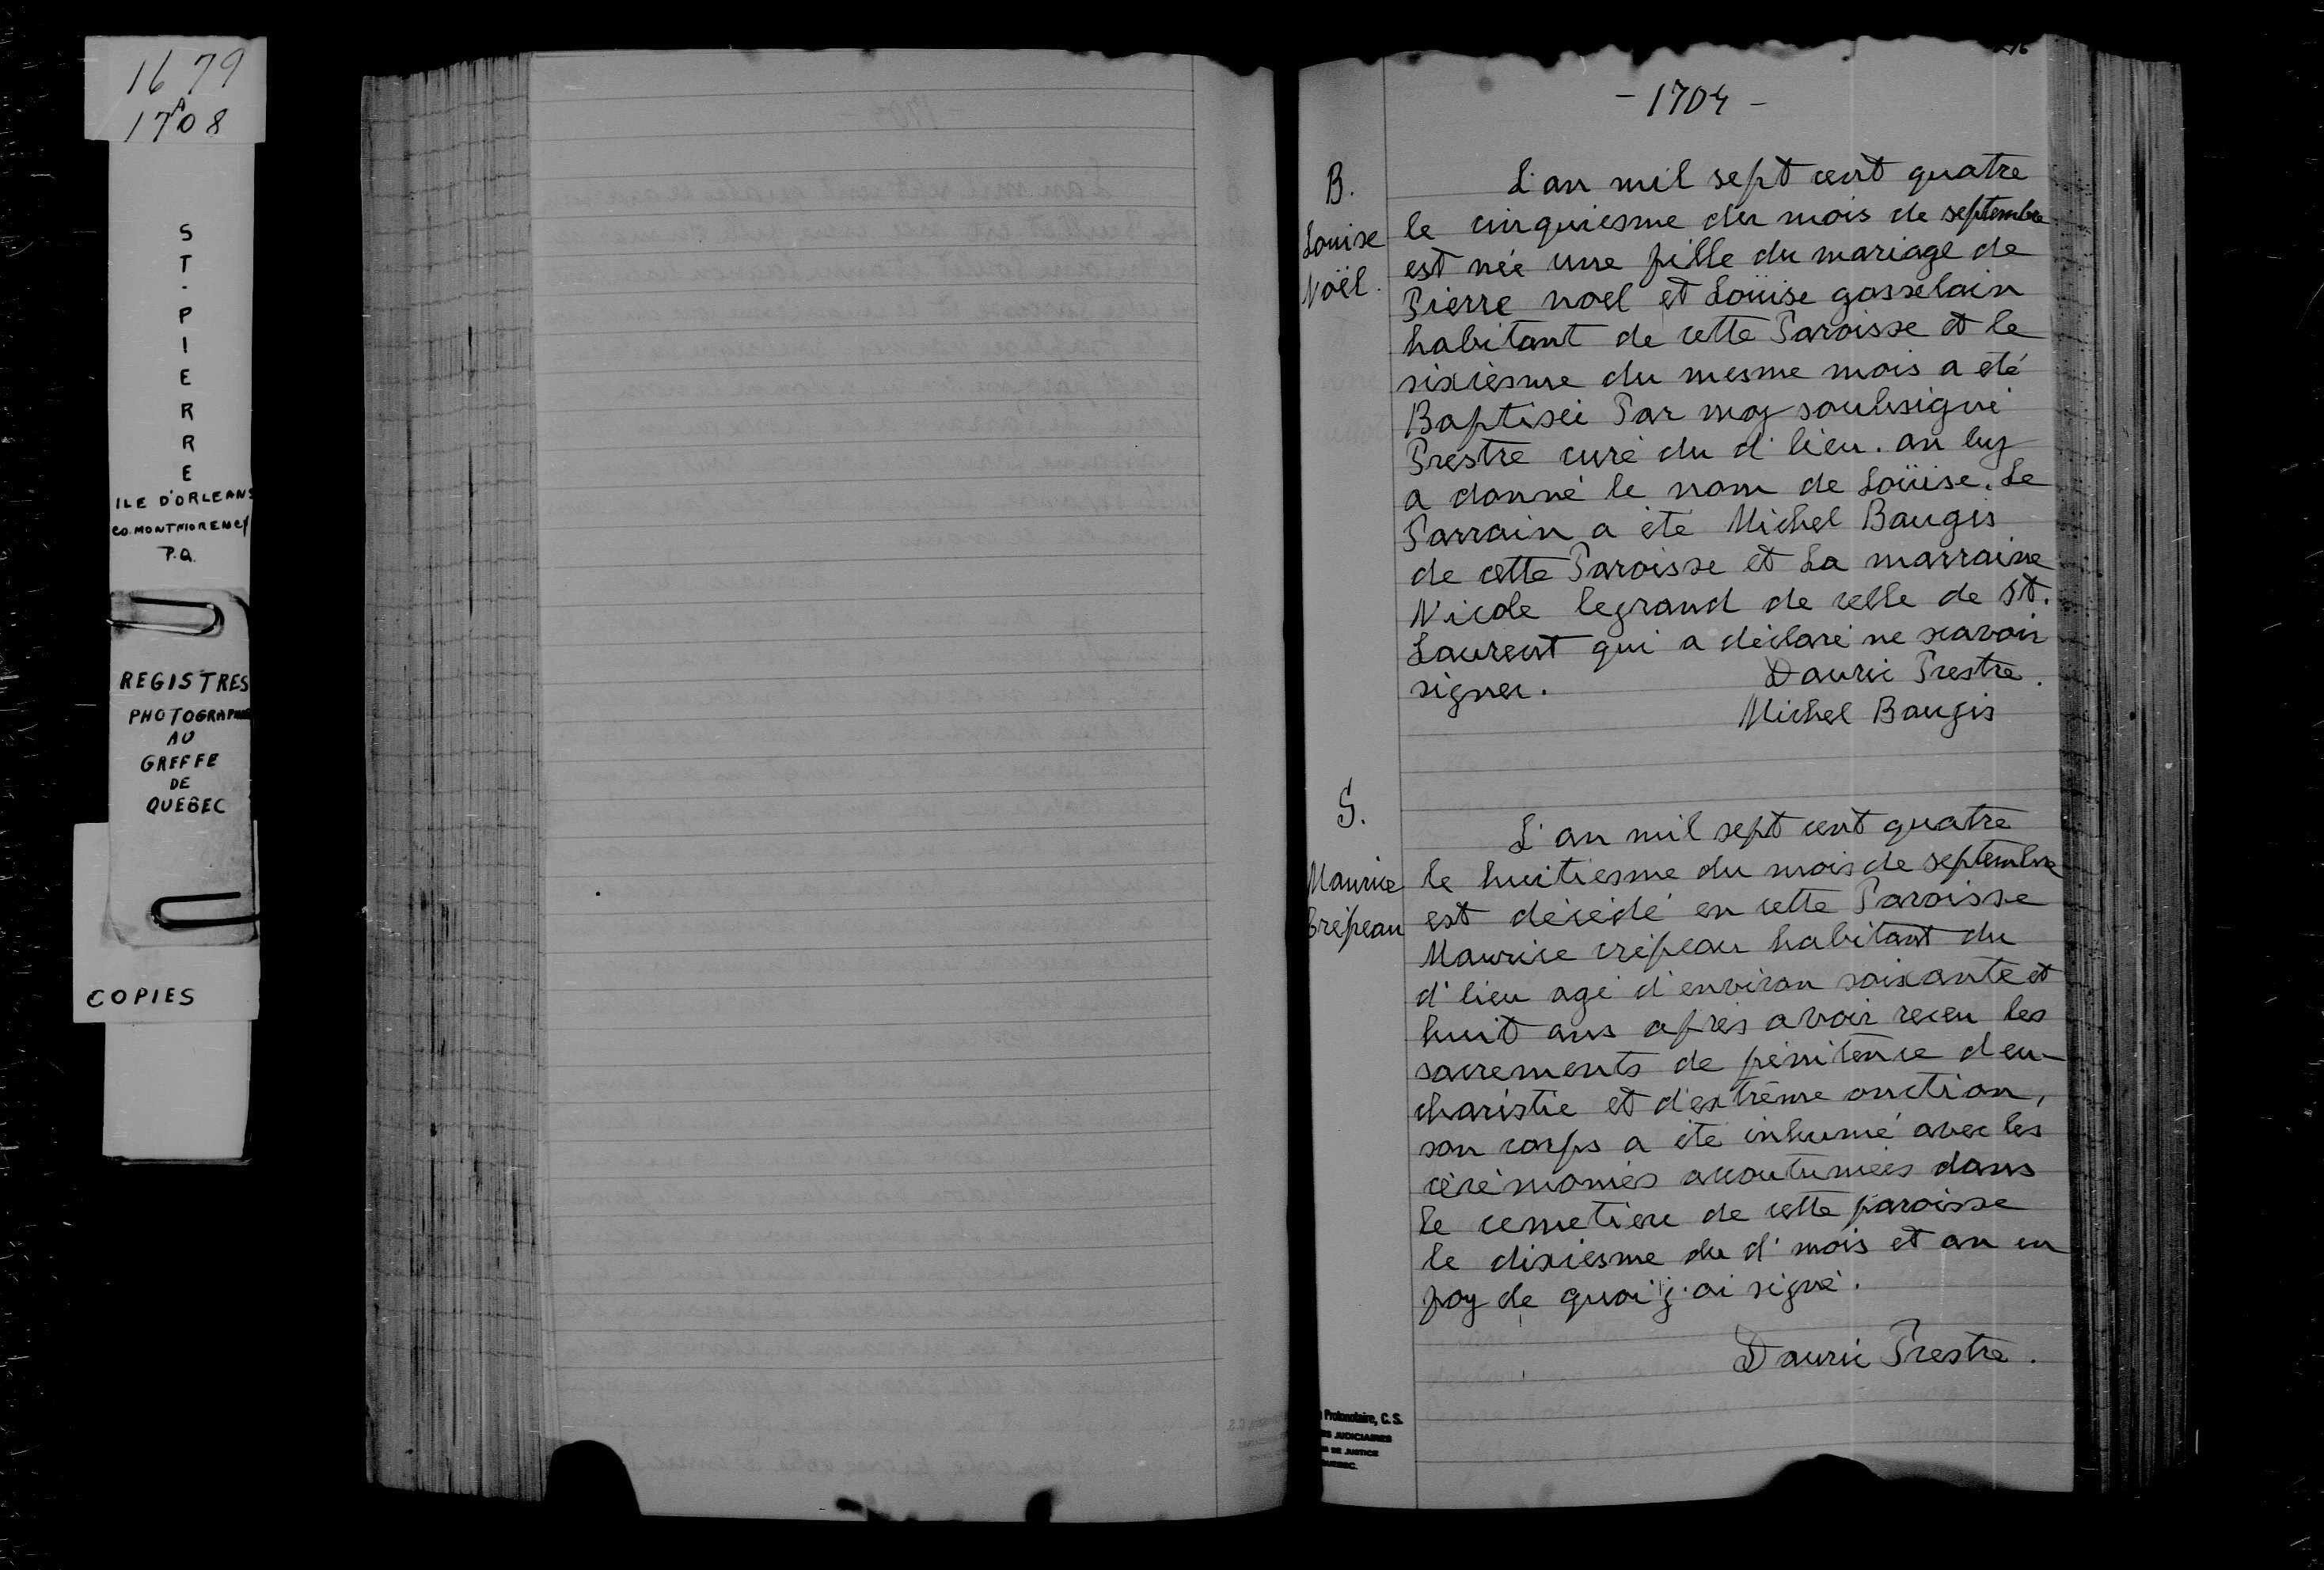 1679
A
1708
ST. PIERRE
ILE D'ORLEANS
CO. MONTMORENCY
P.Q.
REGISTRES
PHOTOGRAPHIE
AU
GREFFE
DE
QUEBEC
COPIES
- 1704 -
B.
Louise
Noël.
L'an mil sept cent quatre
le cinquiesme du mois de septembre
est née une fille du mariage de
Pierre noel et Loüise gosselain
habitant de cette Paroisse et le
sixiesme du mesme mois a été
Baptiséé Par moy soubsigné
Prestre curé du d' lieu. on luy
a donné le nom de Loüise. Le
Parrain a été Michel Baugis
de cette Paroisse et La marraine
Nicole legrand de celle de St.
Laurent qui a déclaré ne scavoir
signer.
Dauric Prestre.
Michel Baugis
S.
Maurice
Crépeau
L'an mil sept cent quatre
le huitiesme du mois de septembre
est décédé en cette Paroisse
Maurice crépeau habitant du
d' lieu agé d'environ soixante et
huit ans après avoir receu les
sacrements de pénitence d'eu-
charistie et d'extrême onction,
son corps a été inhumé avec les
cérémonies accoutumées dans
le cemetiere de cette paroisse
le dixiesme du d' mois et an en
foy de quoi j'ai signé.
Dauric Prestre.
Protonotaire, C. S.
JUDICIAIRES
DE JUSTICE